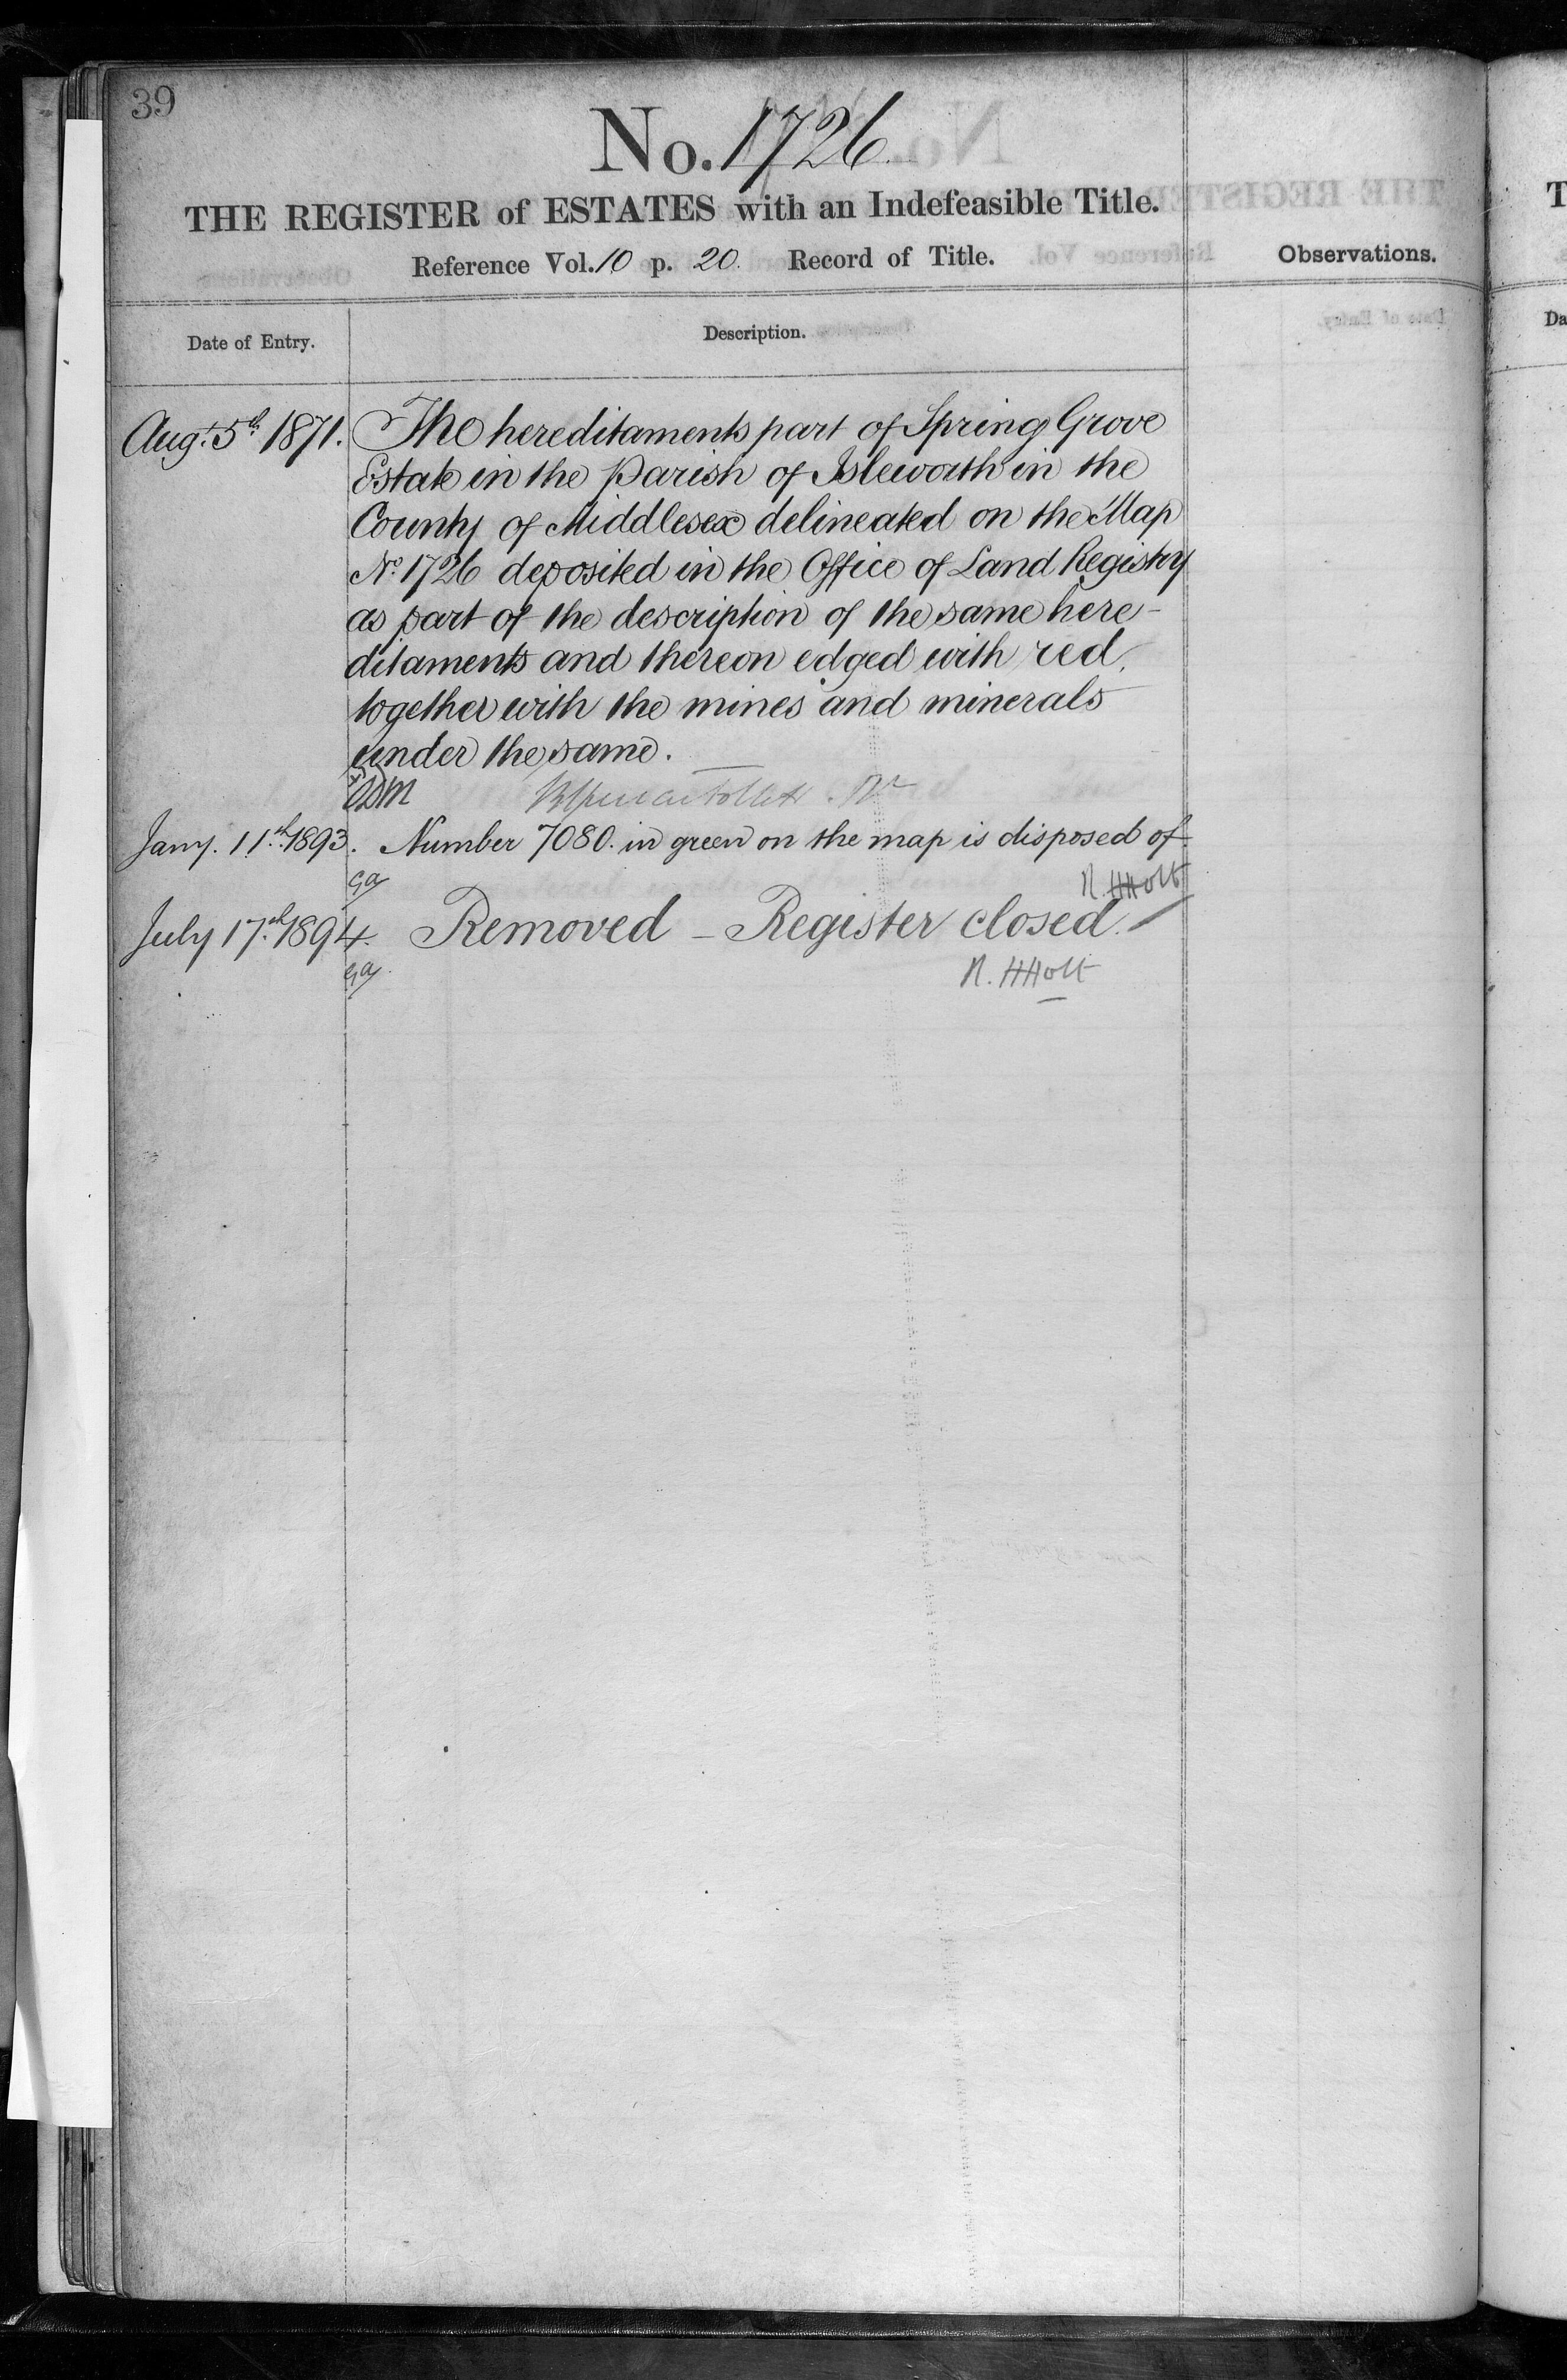 39
No. 1726
THE REGISTER of ESTATES with an Indefeasible Title.
Reference Vol. 10 p. 20. Record of Title.
Observations.
Date of Entry.
Description.
Augt. 5th 1871. The hereditaments part of Spring Grove
Estate in the Parish of Isleworth in the
County of Middlesex delineated on the Map
No. 1726 deposited in the Office of Land Registry
as part of the description of the same here-
ditaments and thereon edged with red,
together with the mines and minerals
under the same.
Jany. 11th 1893. Number 7080. in green on the map is disposed of.
R. HHolt
July 17th 1894. Removed – Register closed.
R. HHolt
T
Da